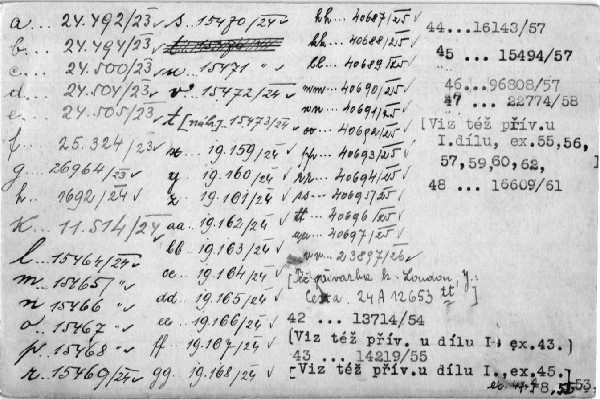 a... 24.492/23 ✓
b... 24.494/23 ✓
c... 24.500/23 ✓
d... 24.504/23 ✓
e... 24.505/23 ✓
f... 25.324/23 ✓
g... 26964/23 ✓
h.. 1692/24 ✓
K... 11.514/24 ✓
l... 15464/24 ✓
m.. 15465/" ✓
n... 15466 " ✓
o... 15467 " ✓
p... 15468 " ✓
r... 15469/24 ✓
s... 15470/24 ✓
u... 15471 " ✓
v... 15472/24 ✓
t [náhr.]... 15473/24 ✓
x... 19.159/24 ✓
y... 19.160/24 ✓
z... 19.161/24 ✓
aa... 19.162/24 ✓
bb... 19.163/24 ✓
cc... 19.164/24 ✓
dd... 19.165/24 ✓
ee... 19.166/24 ✓
ff... 19.167/24 ✓
gg... 19.168/24 ✓
hh... 40687/25 ✓
kk... 40688/25 ✓
ll... 40689/25 ✓
mm... 40690/25 ✓
nn... 40691/25 ✓
oo... 40692/25 ✓
pp... 40693/25 ✓
rr... 40694/25 ✓
ss... 40695/25 ✓
tt... 40696/25 ✓
uu... 40697/25 ✓
vv... 23897/26 ✓
k. London, J.:
24 A 12653 tt]
42 ... 13714/54
(Viz též přív. u dílu I., ex.43.)
43 ... 14219/55
[Viz též přív. u dílu I.,ex.45.]
44...16143/57
45 ... 15494/57
46...96808/57
47 ... 22774/58
[Viz též přív.u
I.dílu, ex.55,56,
57,59,60,62,
48 ... 16609/61
53,